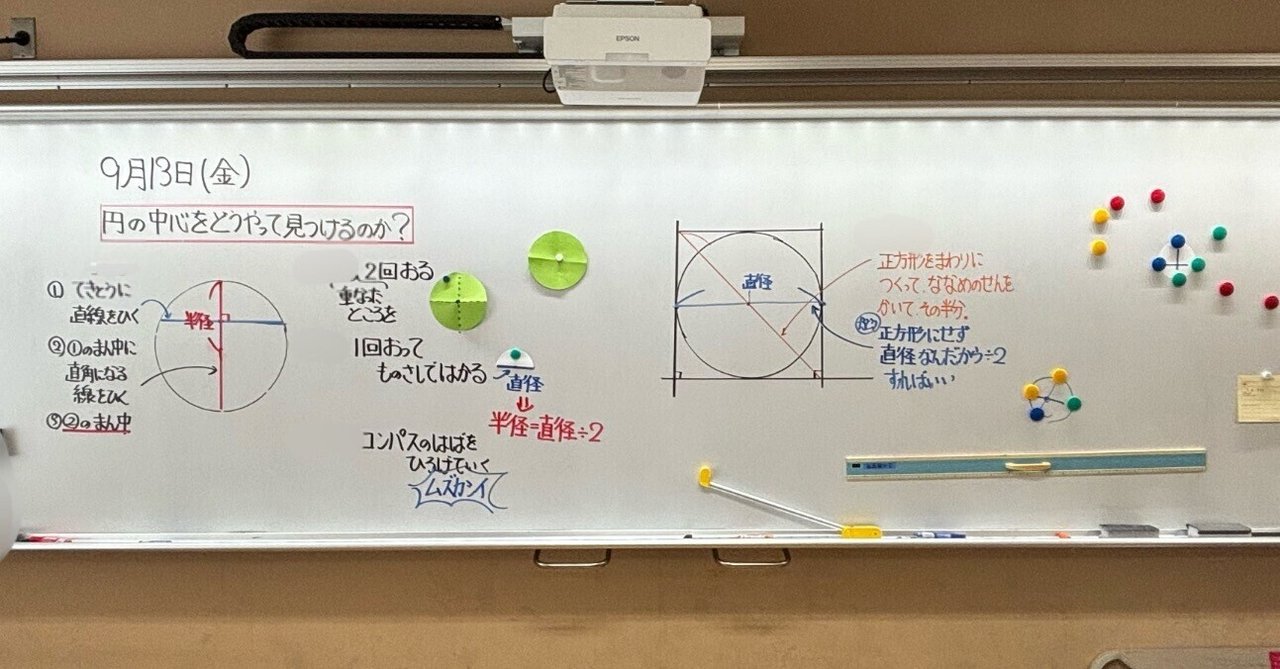 EPSON
9月13日(金)
円の中心をどうやって見つけるのか?
① てきとうに
直線をひく
②①のまん中に
直角になる
線をひく
③②のまん中
半径
2回おる
重なた
ところを
1回おって
ものさしではかる
直径
半径=直径÷2
コンパスのはばを
ひろげていく
ムズカシイ
直径
正方形をまわりに
つくって、ななめのせんを
かいて、その半分。
正方形にせず
直径なんだから÷2
すればいい